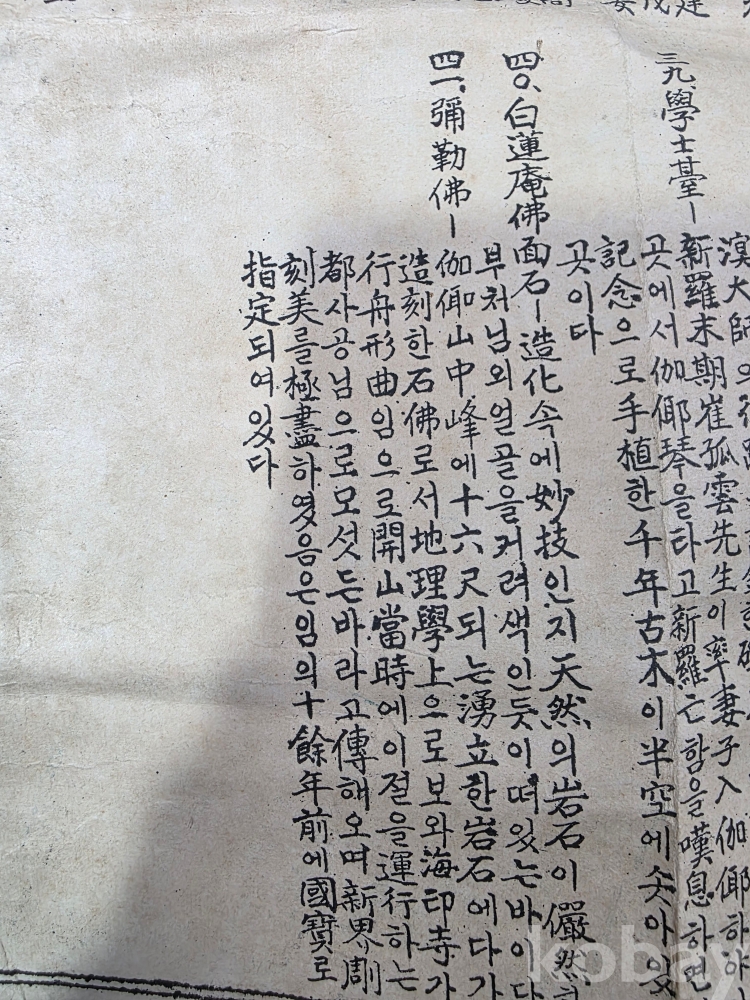 漠大師의
三九、學士臺ー新羅末期崔孤雲先生이率妻子入伽倻하야
곳에서伽倻琴을타고新羅亡함을嘆息하면
記念으로手植한千年古木이半空에솟아있
곳이다
四〇、白蓮庵佛面石ー造化속에妙技인지天然의岩石이儼然
부처님외얼골을커려색인듯이떠있는바이다
四一、彌勒佛ー伽倻山中峰에十六尺되는湧立한岩石에다가
造刻한石佛로서地理學上으로보와海印寺가
行舟形曲임으로開山當時에이절을運行하는
都사공님으로모섯든바라고傳해오며新界彫
刻美를極盡하였음은임의十餘年前에國寶로
指定되여있다
kobay